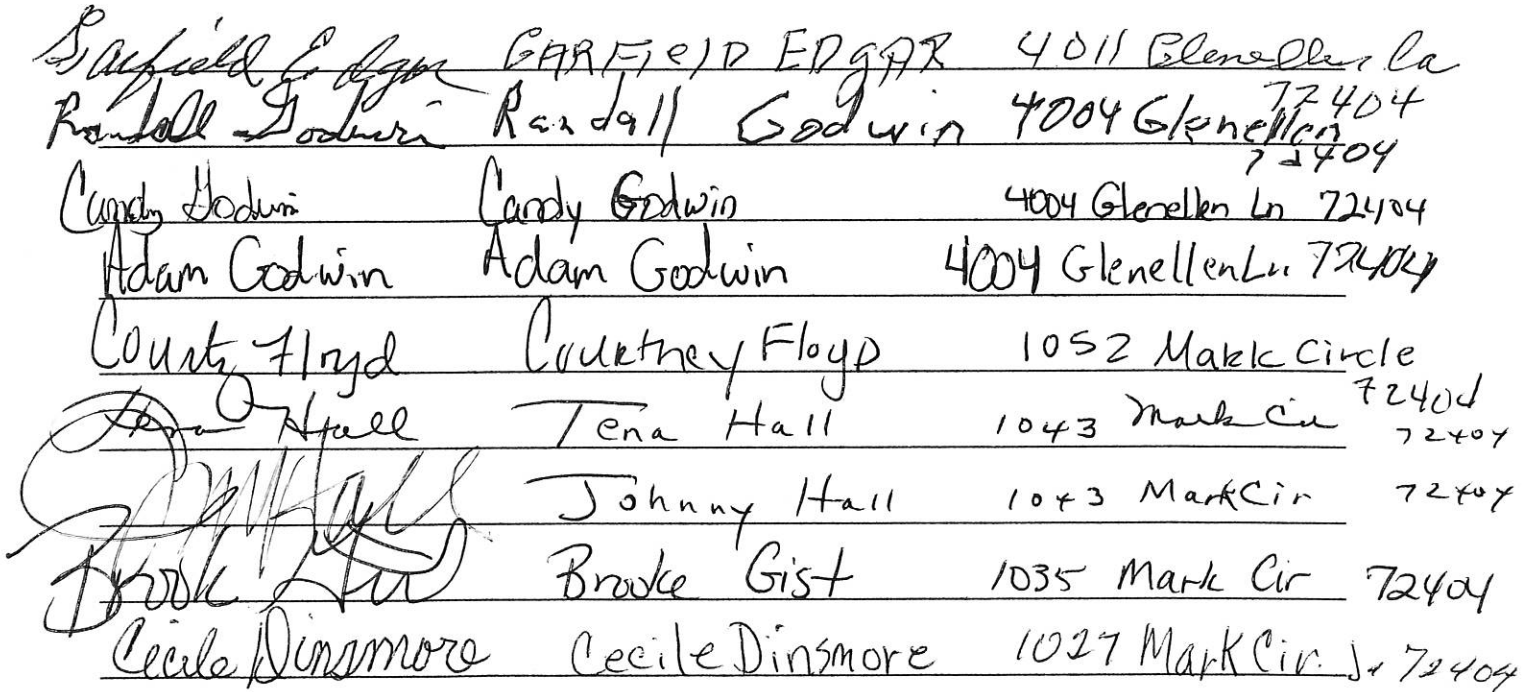 Garfield Edgar GARFIELD EDgAR 4011 Glenellen La
72404
Randall Godwin Randall Godwin 4004 Glenellen
72404
Candy Godwin Candy Godwin 4004 Glenellen Ln 72404
Adam Godwin Adam Godwin 4004 Glenellen Ln. 72404
Floyd Courtney Floyd 1052 Mark Circle
72404
Tena Hall Tena Hall 1043 Mark Cir 72404
Johnny Hall 1043 Mark Cir 72404
Brooke Gist 1035 Mark Cir 72404
Cecile Dinsmore Cecile Dinsmore 1027 Mark Cir. 72404